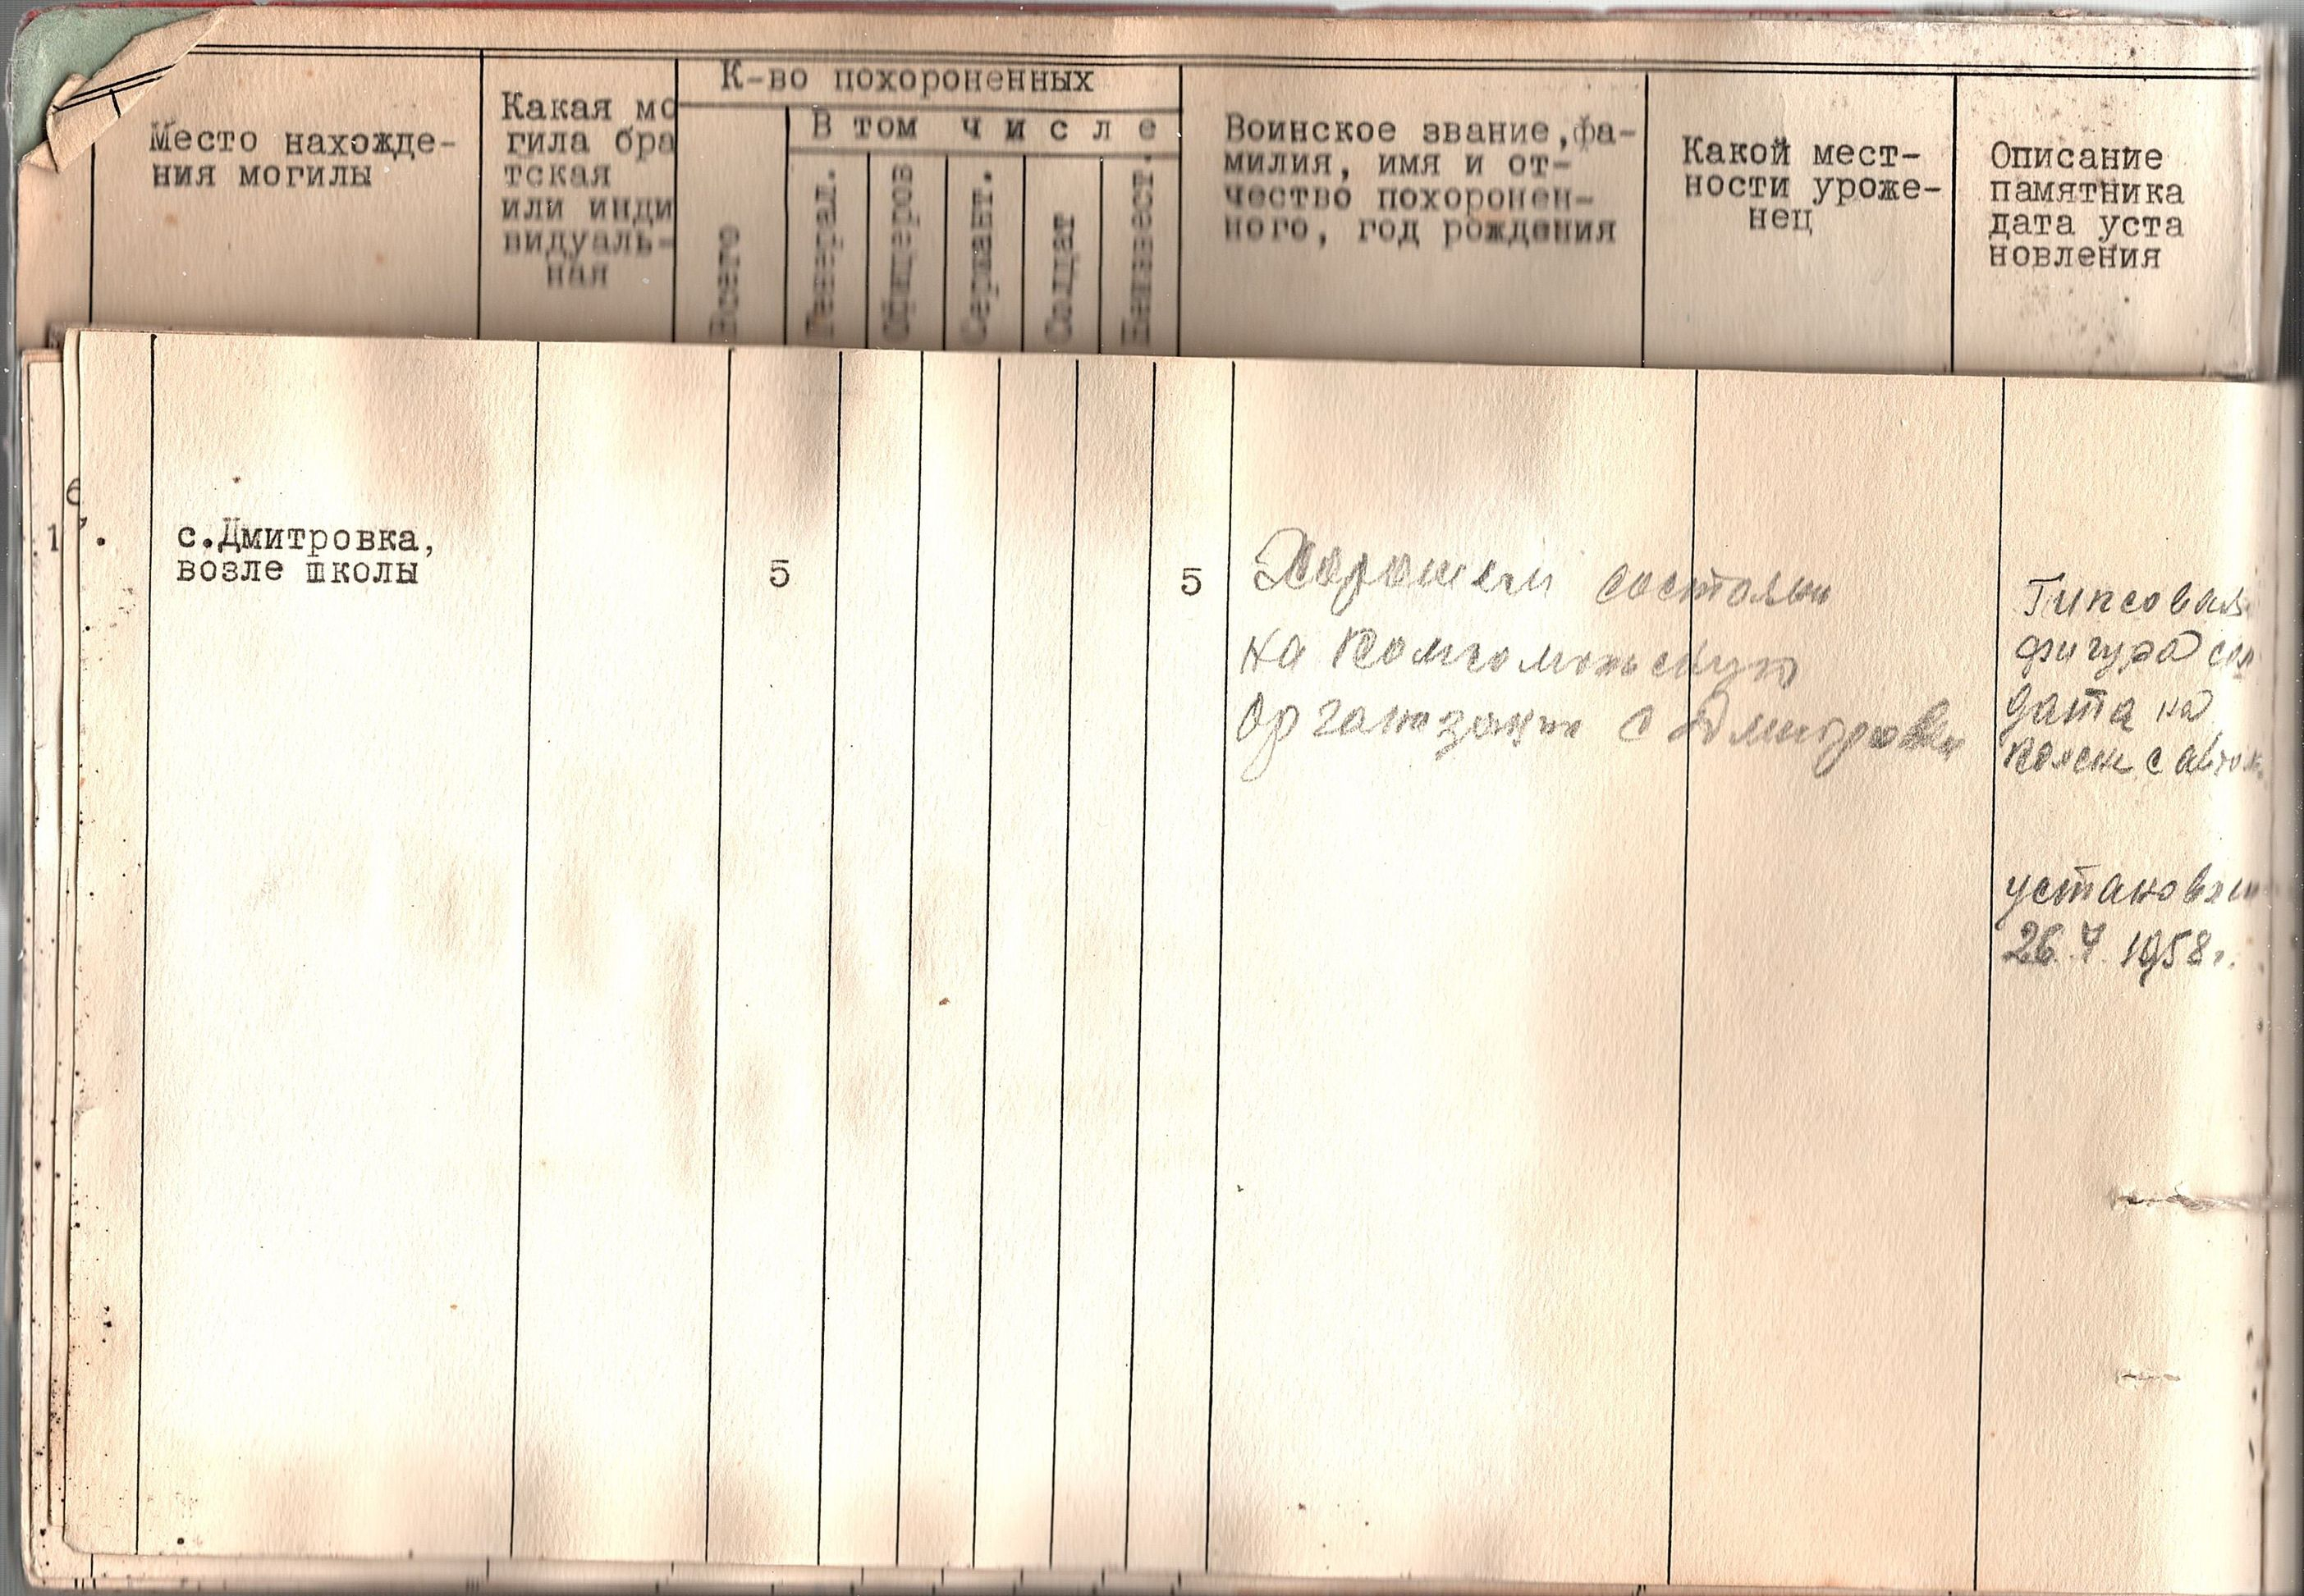 К-во похороненных
Место нахожде-
ния могилы
Какая мо
гила бра
тская
или инди
видуаль-
ная
В том числе
Всего
Генерал.
Офицеров
Сержант.
Солдат
Неизвест.
Воинское звание, фа-
милия, имя и от-
чество похоронен-
ного, год рождения
Какой мест-
ности уроже-
нец
Описание
памятника
дата уста
новления
6
1
.
с.Дмитровка,
возле школы
5
5
Хорошем состоян
на Комсомольскую
организации с Дмитровки
Гипсовая
фигура сол
дата на
колене с автом.
установлен
26.4.1958г.